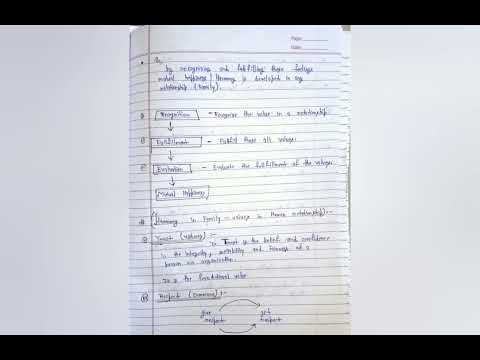 Page:
Date:
So,
by recognising and fulfilling these feelings
mutual happiness / Harmony is developed in any
relationship (family).
Recognition - Recognise the value in a relationship
Fulfillment - Fulfill these all values.
Evaluation - Evaluate the fulfillment of the values
Mutual Happiness
Harmony in Family - values in Human relationship :-
Trust (विश्वास) :-
Trust is the belief and confidence
in the integrity, reliability and fairness of a
person or organisation.
It is the foundational value
Respect (सम्मान) :-
give get
respect respect